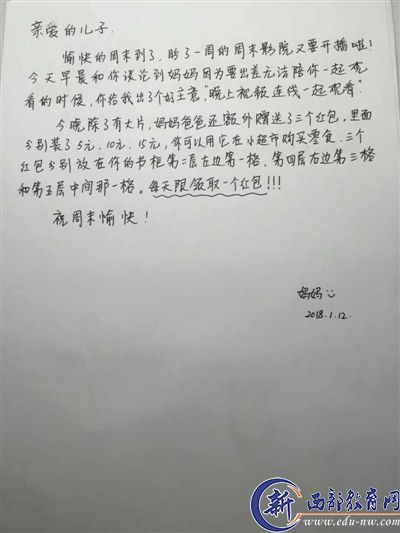 亲爱的儿子：
愉快的周末到了，盼了一周的周末影院又要开播啦！
今天早晨和你谈论到妈妈因为要出差无法陪你一起观
看的时候，你给我出了个好主意，"晚上视频连线一起观看"
今晚除了有大片，妈妈爸爸还额外赠送了三个红包，里面
分别装了5元、10元、15元，你可以用它在小超市购买零食。三个
红包分别放在你的书柜第二层左边第一格、第四层右边第三格
和第五层中间那一格。每天限领取一个红包!!!
祝周末愉快！
妈妈
2018.1.12.
新 西部教育网
www.edu-nw.com